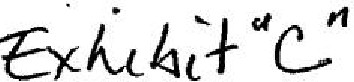 Exhibit "C"